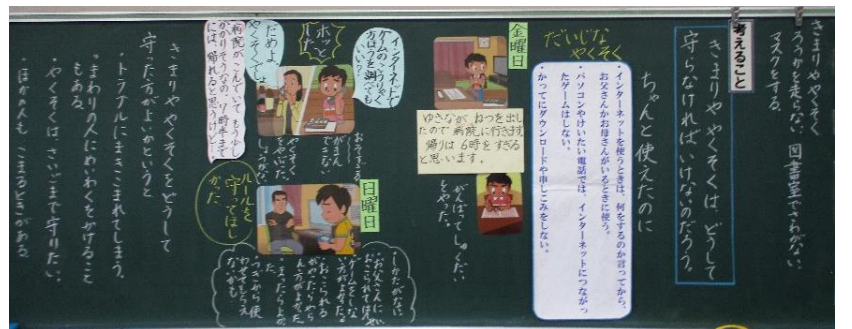 きまりや やくそく
ろうかを走らない 図書室でさわがない
マスクをする。
考えること
きまりや やくそくは、どうして
守らなければ いけないのだろう。
ちゃんと使えたのに
だいじな
やくそく
・インターネットを使うときは、何をするのか言ってから、
お父さんかお母さんがいるときに使う。
・パソコンやけいたい電話では、インターネットにつながっ
たゲームはしない。
・かってにダウンロードや申しこみをしない。
金曜日
ゆきなが ねつを出し
たので 病院に行きます
帰りは 6時をすぎる
と思います。
がんばってしゅくだい
をやった。
インターネットで
ゲームのこうりゃく
方ほうを調べても
いい？
ホッと
した
だめよ
やくそくでしょ
病院がこんでいて もう少し
かかりそうなの。7時半まで
には、帰れると思うけど…。
おそすぎる
がまん
できない
やくそく
をやぶった
しょうがない
日曜日
ルールを
守ってほし
かった
・しかたがない
・お父さんに
おこられてほ
・ゲームをしな
い方がよかった
・おこられる
・まったらよか
った
・つぎから使
わせてもらえ
ないかも
きまりや やくそくを どうして
守った方がよいかというと
・トラブルに まきこまれてしまう。
・まわりの人に めいわくをかけること
もある。
・やくそくは さいごまで守りたい。
・ほかの人も こまるときがある